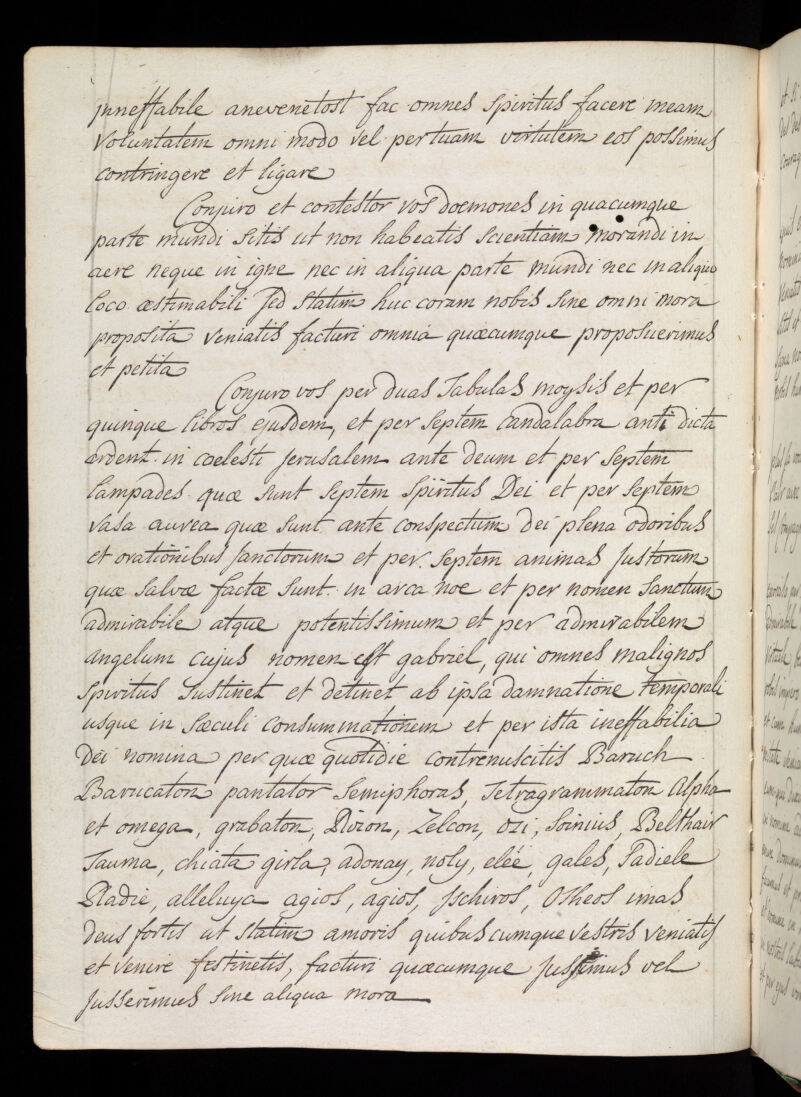 jnneffabile anevenetost fac omnes spiritus facere meam
voluntatem omni modo vel per tuam virtutem eos possimus
contringere et ligare
Conjuro et contestor vos doemones in quacumque
parte mundi sitis ut non habeatis scientiam morandi in
aere neque in igne nec in aliqua parte mundi nec in aliquo
loco æstimabili sed statim huc coram nobis sine omni mora
proposita veniatis facturi omnia quæcumque proposuerimus
et petita
Conjuro vos per duas tabulas moysis et per
quinque libros ejusdem, et per septem candalabra anti dicta
ardent in cœlesti jerusalem ante deum et per septem
lampades quæ sunt septem spiritus Dei et per septem
vasa aurea quæ sunt ante conspectum dei plena odoribus
et orationibus sanctorum et per septem animas justorum
quæ salvæ factæ sunt in arca noe et per nomen sanctum
admirabile atque potentissimum et per admirabilem
angelum cujus nomen est gabriel, qui omnes malignos
spiritus sustinet et detinet ab ipsa damnatione temporali
usque in sæculi consummationem et per ista ineffabilia
Dei nomina per quæ quotidie contremuscitis Baruch
Barucaton pantator semiphoras, tetragrammaton Alpha
et omega, grabaton, Rizon, Zelcon, ozi, soinius, Belthair
tauma, chiata girla, adonay, noly, elée, gales, tadiele
Pladie, alleluya agios, agios, jschiros, otheos imas
deus fortis ut statim amoris quibuscumque vestris veniatis
et venire festinetis, facturi quæcumque jussimus vel
jusserimus sine aliqua mora